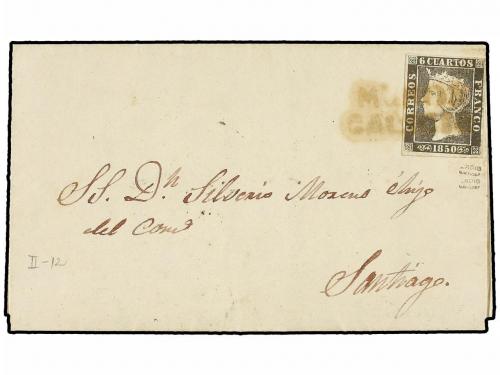 6 CUARTOS
CORREOS
FRANCO
1850
SS. Dn. Silverio Moreno é hijo
del Como
Santiago.
II-12